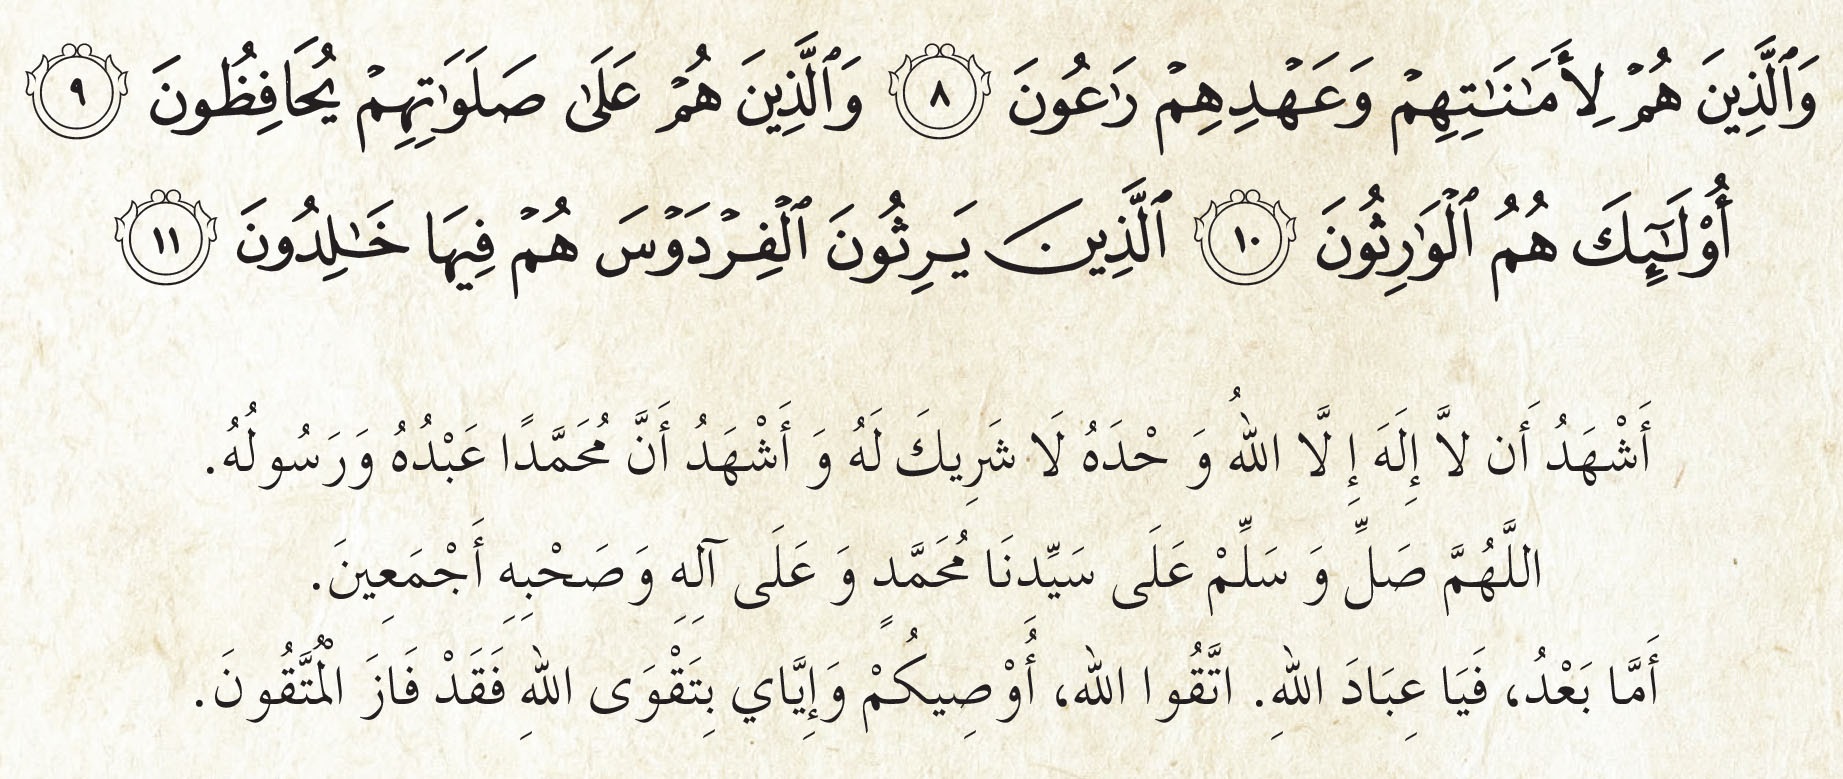 وَٱلَّذِينَ هُمْ لِأَمَـٰنَـٰتِهِمْ وَعَهْدِهِمْ رَٰعُونَ ٨ وَٱلَّذِينَ هُمْ عَلَىٰ صَلَوَٰتِهِمْ يُحَافِظُونَ ٩
أُوْلَـٰٓئِكَ هُمُ ٱلْوَٰرِثُونَ ١٠ ٱلَّذِينَ يَرِثُونَ ٱلْفِرْدَوْسَ هُمْ فِيهَا خَـٰلِدُونَ ١١
أَشْهَدُ أَن لاَّ إِلَهَ إِلَّا اللهُ وَحْدَهُ لَا شَرِيكَ لَهُ وَ أَشْهَدُ أَنَّ مُحَمَّدًا عَبْدُهُ وَرَسُولُهُ.
اللَّهُمَّ صَلِّ وَ سَلِّمْ عَلَى سَيِّدِنَا مُحَمَّدٍ وَ عَلَى آلِهِ وَصَحْبِهِ أَجْمَعِينَ.
أَمَّا بَعْدُ، فَيَا عِبَادَ اللهِ. اتَّقُوا الله، أُوْصِيكُمْ وَإِيَّايَ بِتَقْوَى اللهِ فَقَدْ فَازَ الْمُتَّقُونَ.